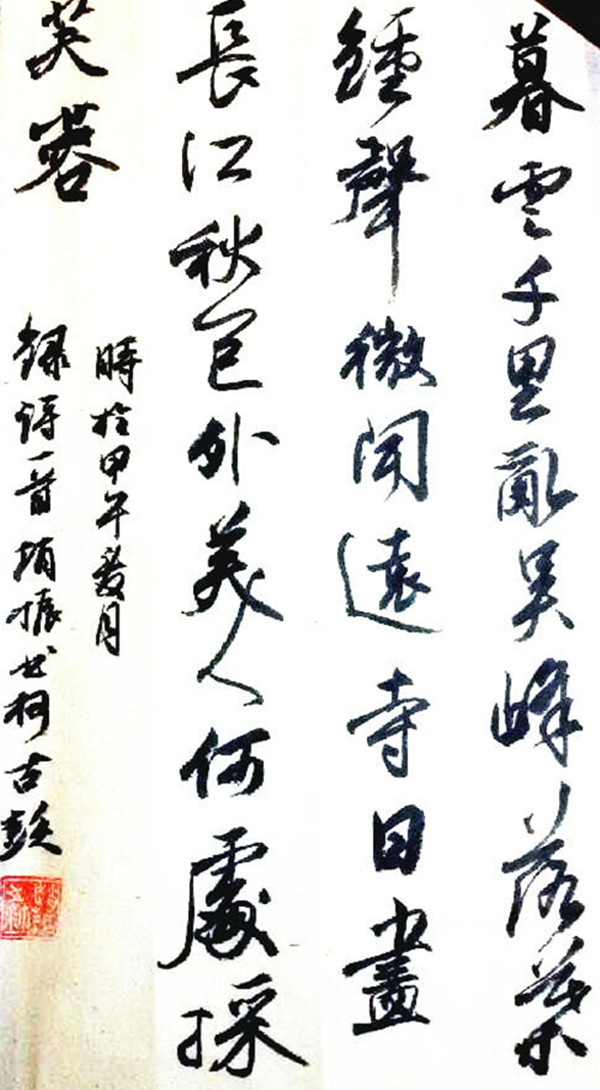 暮雲千里亂吳峰落葉
鍾聲微聞遠寺日畫
長江秋色外美人何處採
芙蓉
時於甲午夏月
録詩一首項振書柯古彭